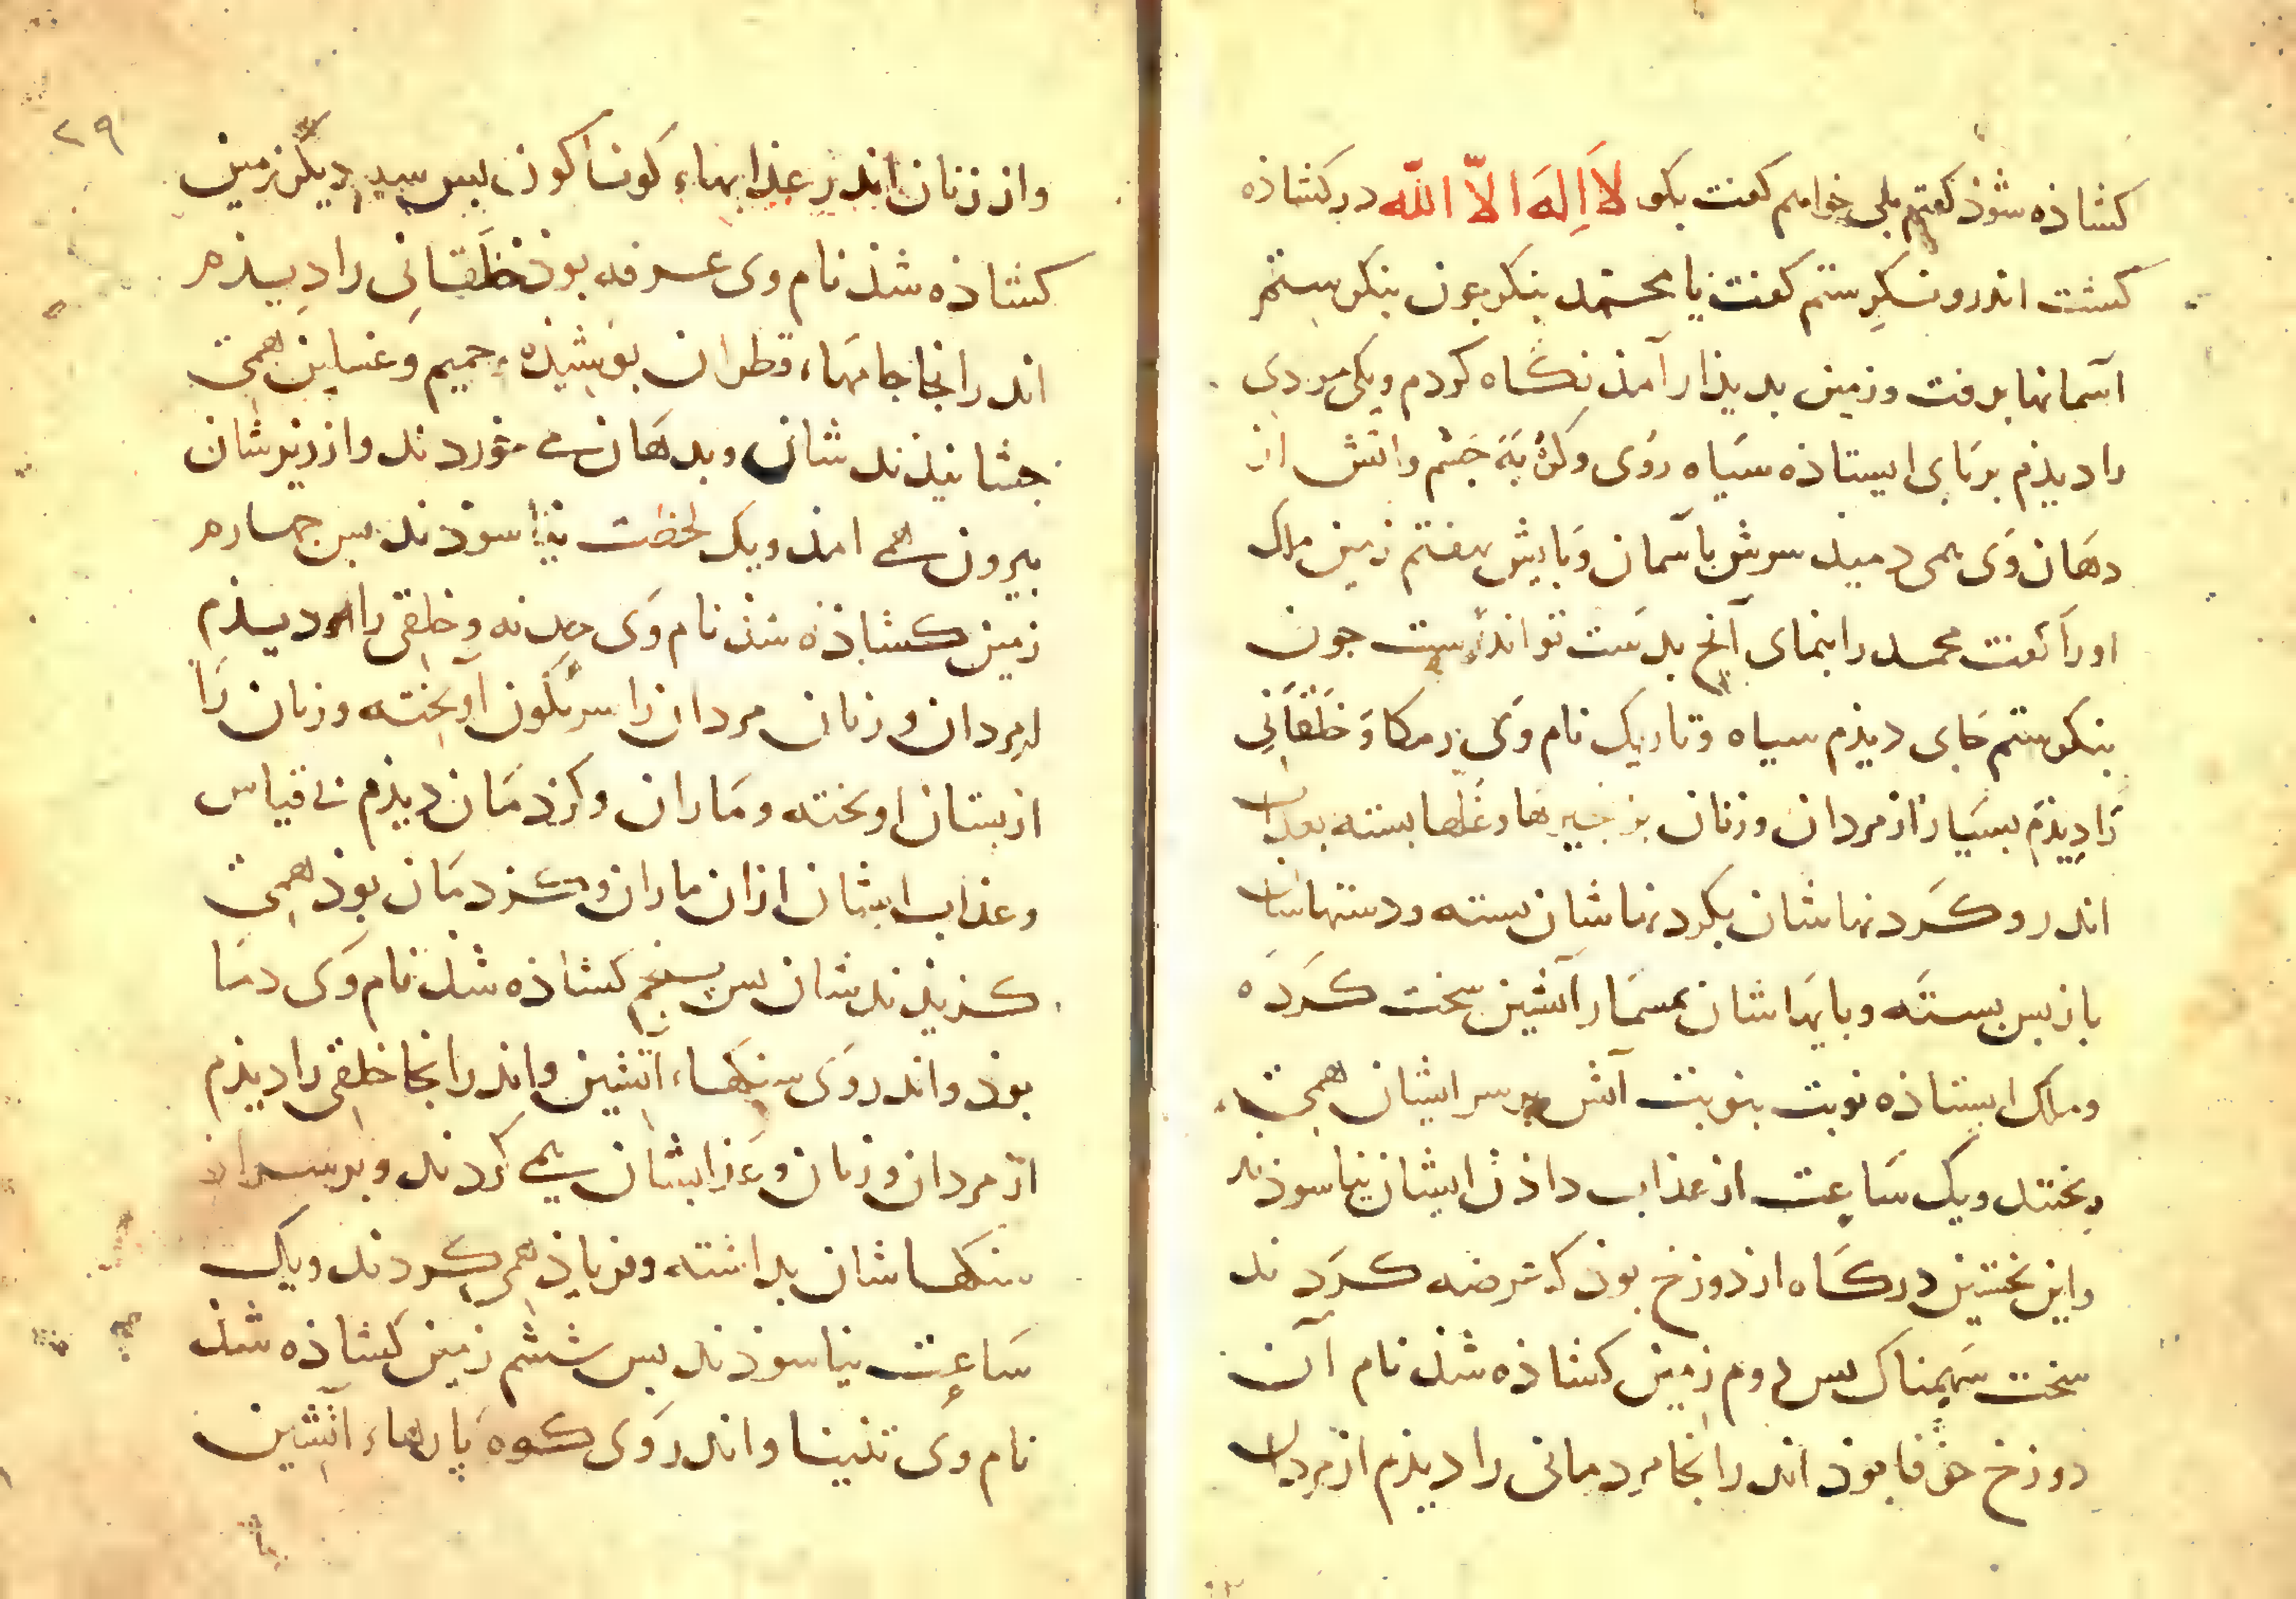 کشاذه شوذ کفتم بلی خواهم کفت بکو لَا اِلٰهَ اِلَّا اللّٰه در کشاذه
کشت اندرو نکرستم کفت یا محمد بنکر چون بنکرستم
آسمانها برفت و زمین بدیذار آمذ نکاه کردم ویکی مردی
را دیذم بربای ایستاذه سیاه روی و کربه جشم و اتش از
دهان وی همی دمید سرش باسمان و بایش بهفتم زمین ملک
اورا کفت محمد را بنمای آنج بدست تو اندرست جون
بنکرستم جای دیذم سیاه و تاریک نام وی رمکا و خلقانی
را دیذم بسیار از مردان و زنان بزنجیرها و غلها بسته بعذاب
اندر و کردنهاشان بکردنهاشان بسته و دستهاشان
باز بس بسته و بایهاشان بمسمار آتشین سخت کرده
و ملک ایستاذه نوبت بنوبت آتش بر سر ایشان همی
ریختند و یک ساعت از عذاب داذن ایشان نیاسوذند
و این نخستین درکاه از دوزخ بوذ که عرضه کردند
سخت سهمناک بس دوم زمین کشاذه شذ نام آن
دوزخ حرفا بوذ اندرانجا مردمانی را دیذم از مردان
۲۹
و از زنان اندر عذابهاء کوناکون بس سیم دیکر زمین
کشاذه شذ نام وی عرفه بوذ خلقانی را دیذم
اندرانجا جامهاء قطران بوشیذه حمیم و غسلین همی
جشانیذند شان و بدهان می خوردند و از زیرشان
بیرون همی امذ و یک لحظت نیاسوذند بس جهارم
زمین کشاذه شذ نام وی جدنه و خلقی را دیذم
از مردان و زنان مردان را سرنکون آویخته و زنان را
از بستان اویخته و ماران و کژدمان دیذم بی قیاس
و عذاب ایشان ازان ماران و کژدمان بوذ همی
کزیذندشان بس پنجم کشاذه شذ نام وی دما
بوذ و اندر وی سنکهاء آتشین و اندرانجا خلقی را دیذم
از مردان و زنان و عذابشان همی کردند و بر سر از
سنکها شان بداشته و فریاذ همی کردند و یک
ساعت نیاسوذند بس ششم زمین کشاذه شذ
نام وی تنینا و اندر وی کوه پارهاء آتشین